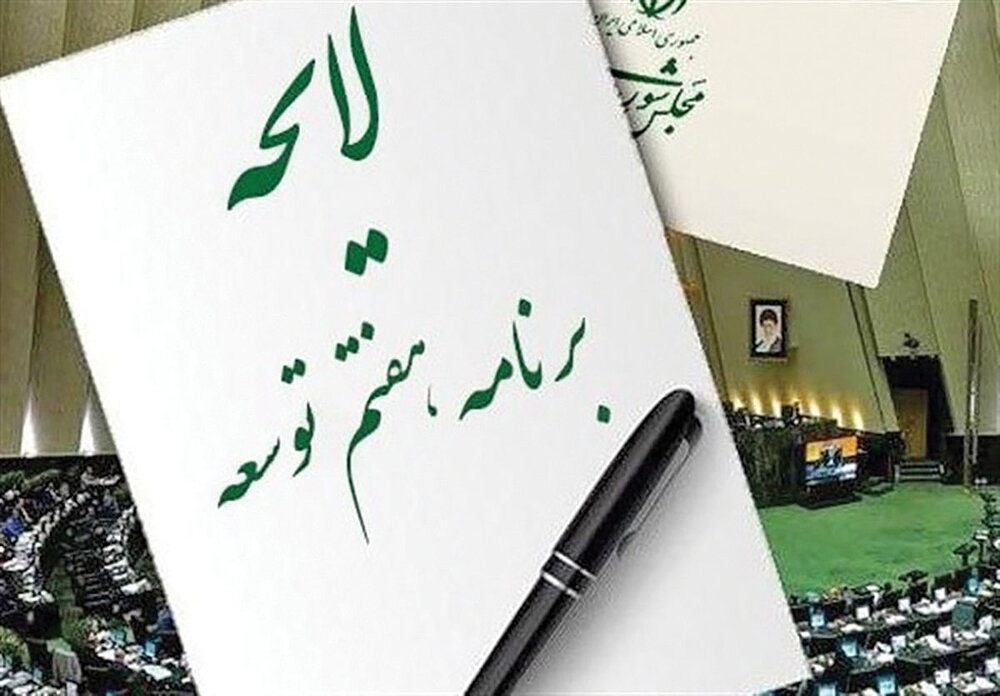 جمهوری اسلامی ایران
مجلس شورای
لایحه
برنامه هفتم توسعه